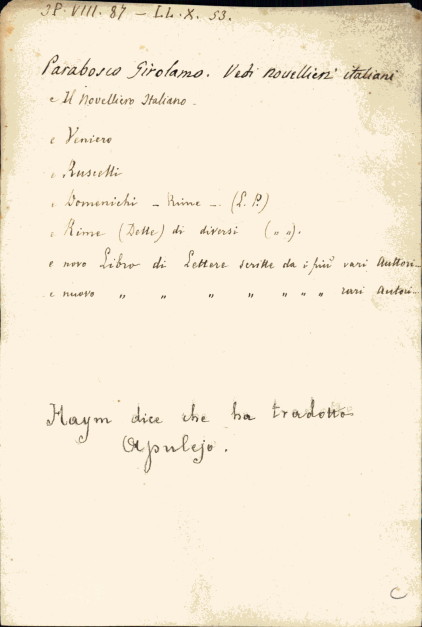 3P. VIII. 87 — LL. X. 53.
Parabosco Girolamo. Vedi novellieri italiani
e Il Novelliero Italiano -
e Veniero
e Ruscelli
e Domenichi - Rime -. (L. P.)
e Rime (Dette) di diversi („ „).
e novo Libro di Lettere scritte da i più rari Auttori -
e nuovo „ „ „ „ „ „ „ rari autori -
Haym dice che ha tradotto
Apulejo.
C